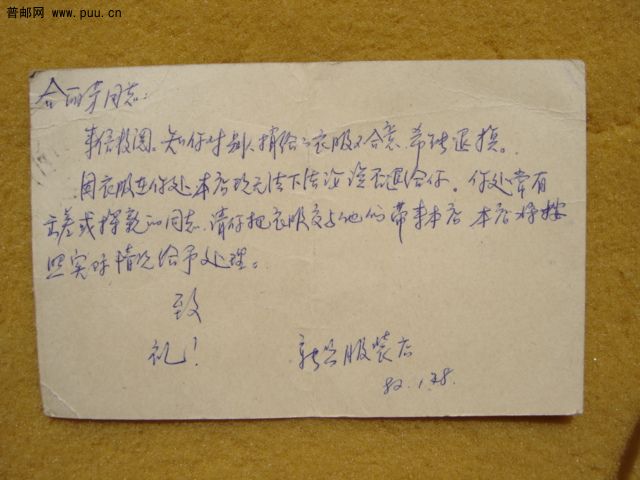 普邮网 www.puu.cn
同志:
来信收阅。知你对别人捎给之衣服不合意,希望退换。
因衣服在你处,本店现无法下结论该不退给你。你处常有
出差或探亲的同志,请你把衣服交与他们带来本店,本店将按
照实际情况给予处理。
致
礼!
服装店
82.1.28.